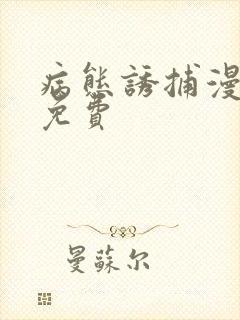 病態誘捕漫
免費
曼蘇尔